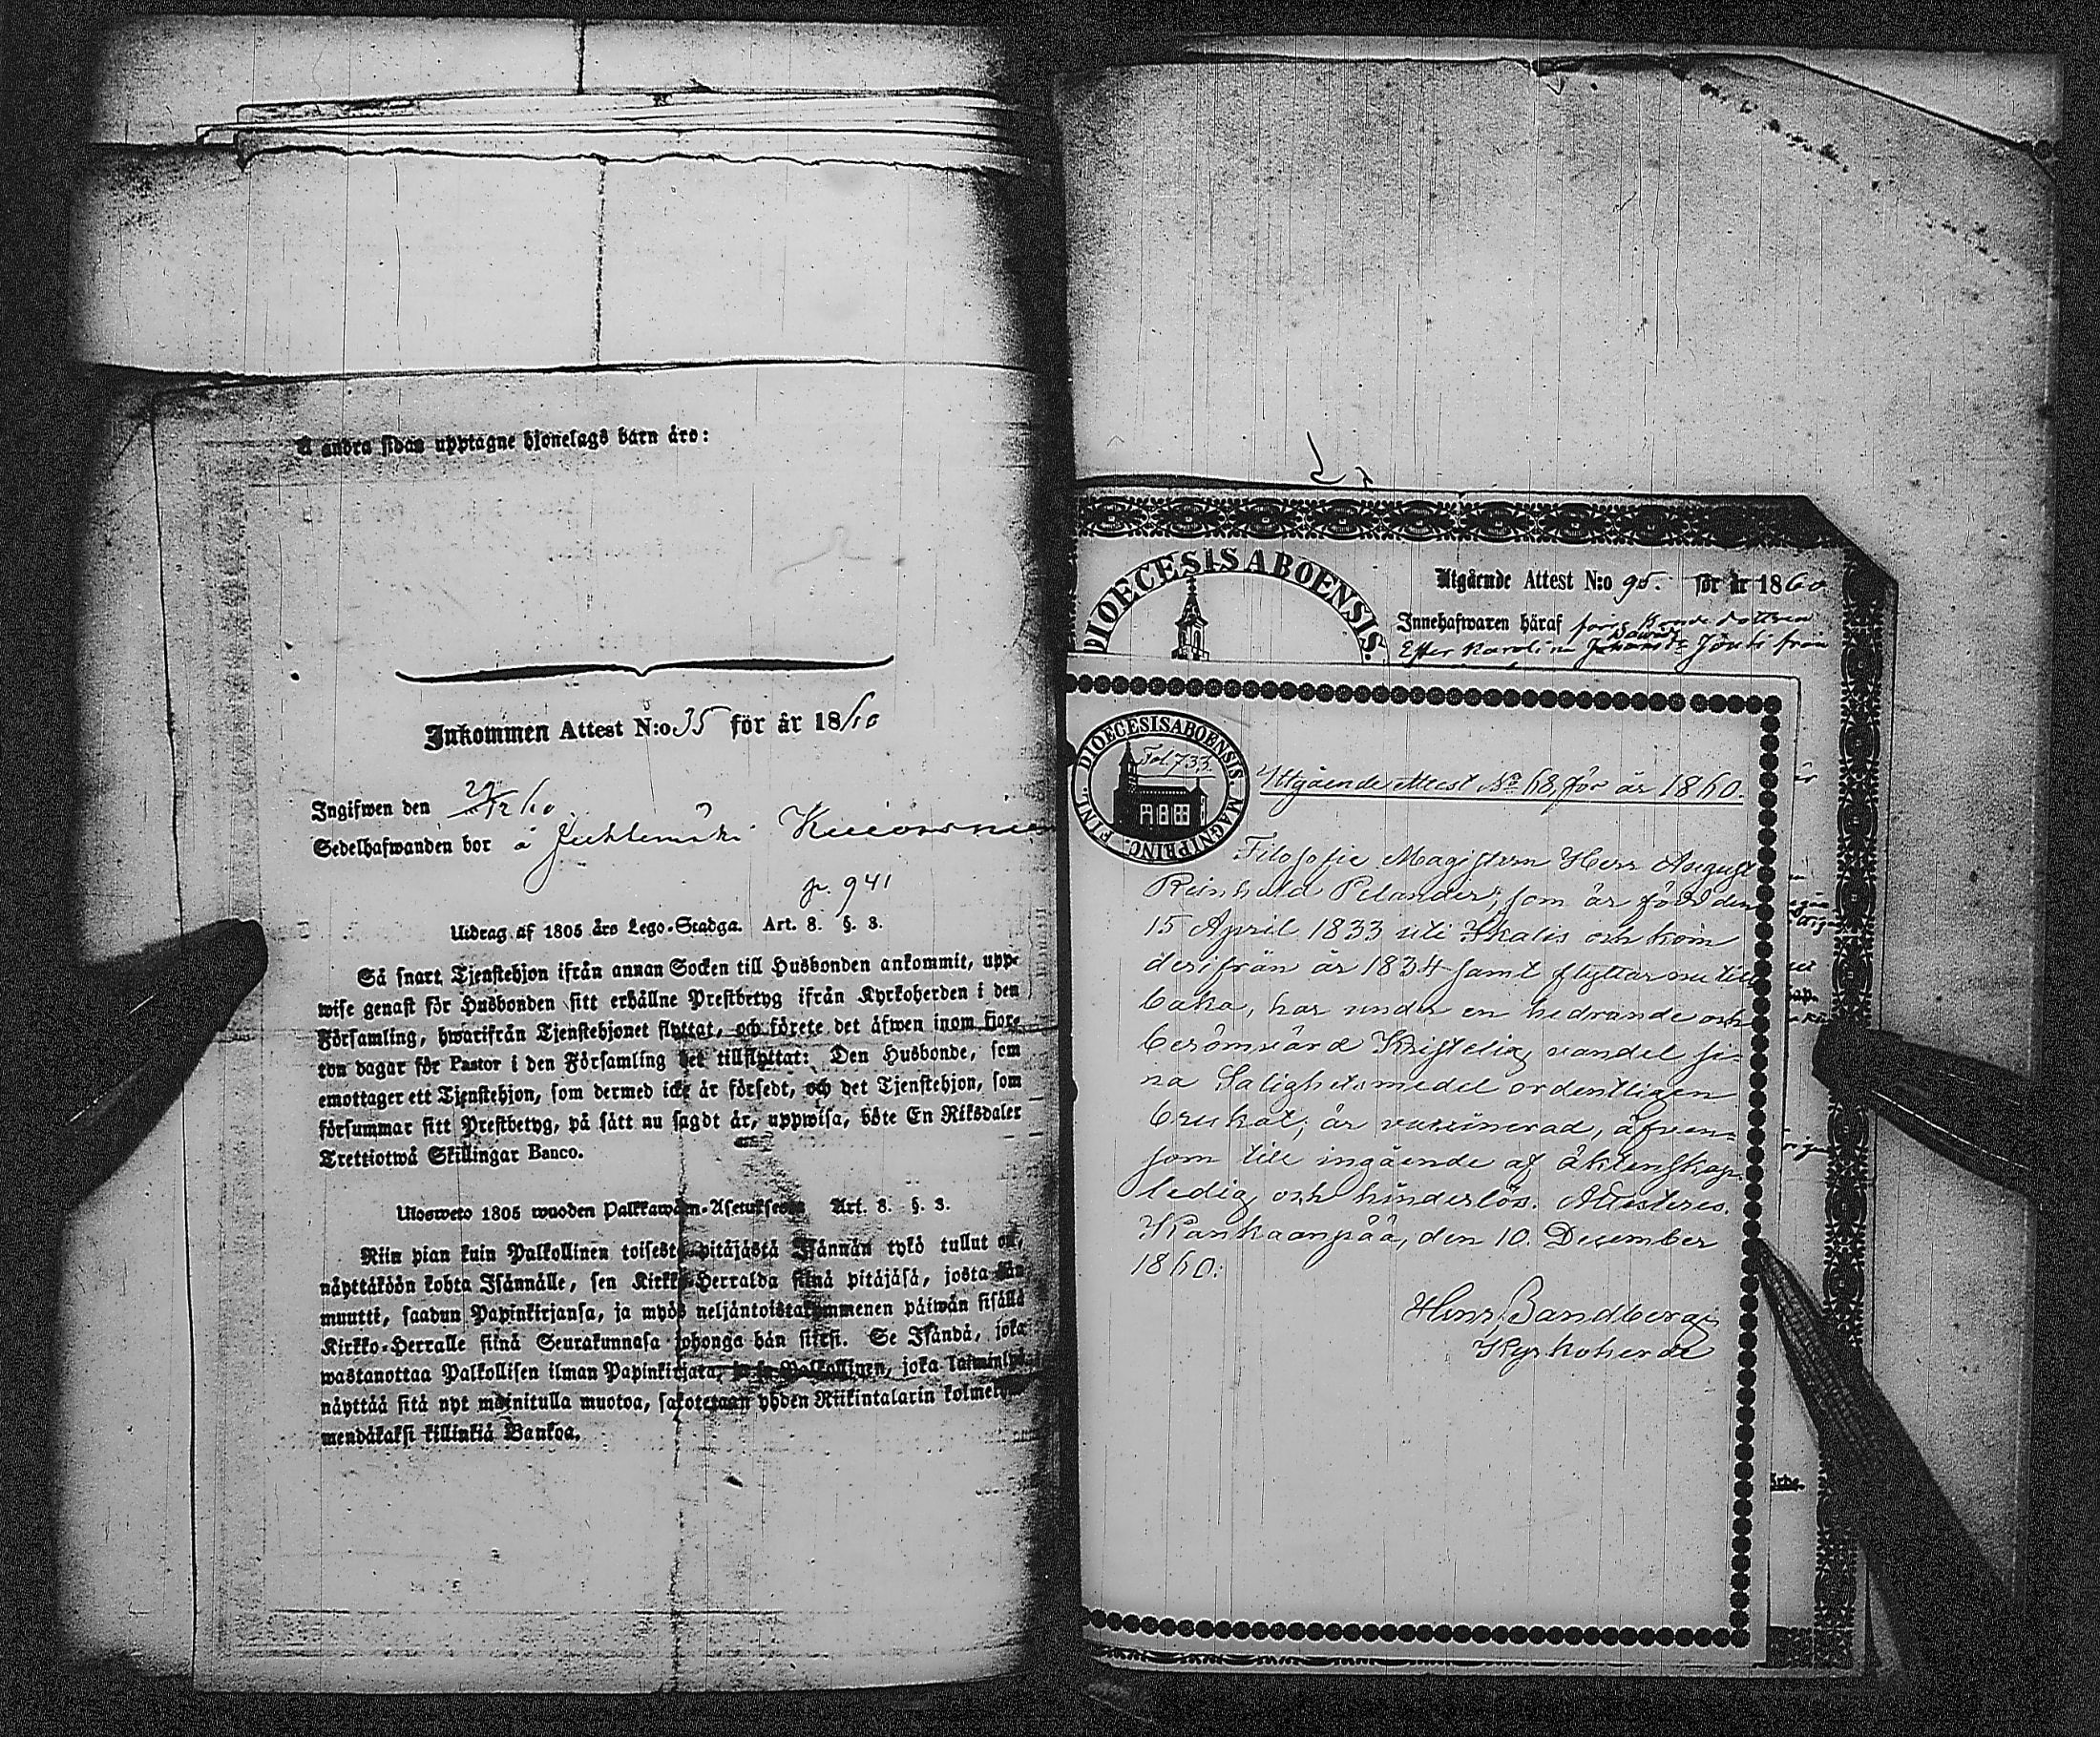 Å andra sidan upptagne hjonelags barn äro:
Inkommen Attest N:o 35 för år 1860
Ingifwen den 29/12 60
Sedelhafwanden bor å
p. 941
Utdrag af 1805 års Lego-Stadga. Art. 8. §. 3.
Så snart Tjenstehjon ifrån annan Socken till Husbonden ankommit, upp-
wise genast för Husbonden sitt erhållne Prestbetyg ifrån Kyrkoherden i den
Församling, hwarifrån Tjenstehjonet flyttat, och förete det äfwen inom fjor-
ton dagar för Pastor i den Församling det tillflyttat: Den Husbonde, som
emottager ett Tjenstehjon, som dermed icke är försedt, och det Tjenstehjon, som
försummar sitt Prestbetyg, på sätt nu sagdt är, uppwisa, böte En Riksdaler
Trettiotwå Skillingar Banco.
Ulosweto 1805 wuoden Palkkawäen-Asetuksesta Art. 8. §. 3.
Niin pian kuin Palkollinen toisesta pitäjästä Isännän tykö tullut on,
näyttäköön kohta Isännälle, sen Kirkko-Herralda siinä pitäjäsä, josta hän
muutti, saadun Papinkirjansa, ja myös neljäntoistakymmenen päiwän sisällä
Kirkko-Herralle siinä Seurakunnasa johonga hän siirsi. Se Isändä, joka
wastanottaa Palkollisen ilman Papinkirjata, ja se Palkollinen, joka laiminlyö
näyttää sitä nyt mainitulla muotoa, sakotetaan yhden Riikintalarin kolmekym-
mendäkaksi killinkiä Bankoa.
DIOECESIS ABOENSIS.
Utgående Attest N:o 95. för år 1860.
Innehafwaren häraf
Karolina från
DIOECESIS ABOENSIS. MAGNI PRINC. FINL.
Fol 733.
Utgående Attest No 68, för år 1860.
Filosofie Magistern Herr August
Reinhold Pelander, som är född den
15 April 1833 uti Ikalis och kom
derifrån år 1834 samt flyttar nu till
baka, har under en hedrande och
berömvärd Kristelig vandel si-
na Salighetsmedel ordentligen
brukat, är vaccinerad, äfven-
som till ingående af äktenskap
ledig och hinderlös. Attesteras.
Kankaanpää, den 10. December
1860.
Henr. Sandberg
Kyrkoherde